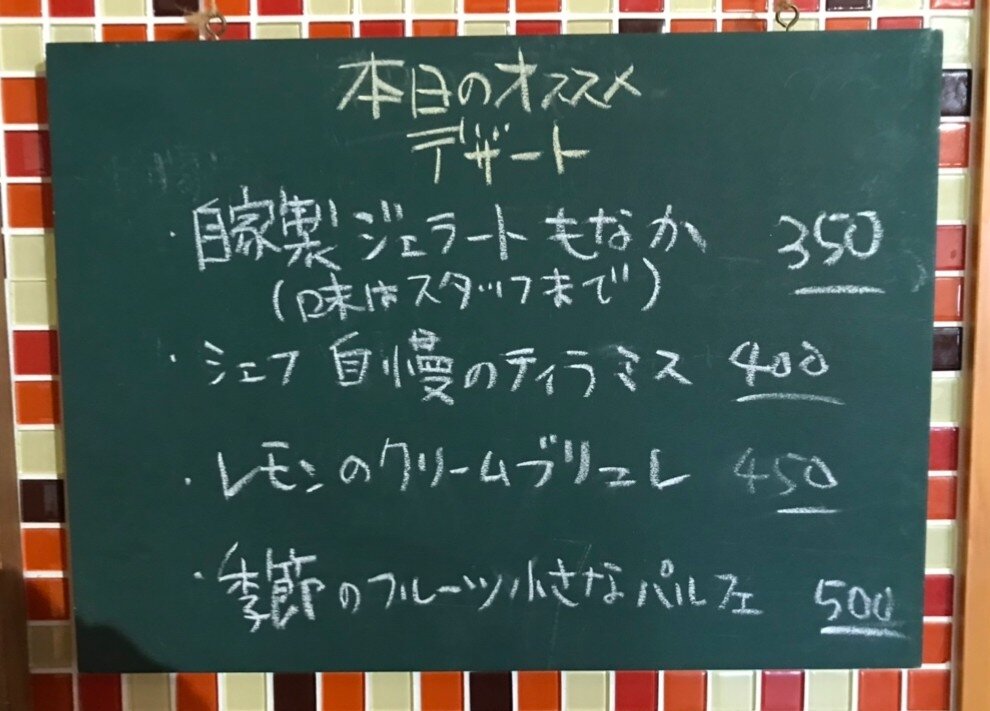 本日のオススメ
デザート
・自家製ジェラートもなか 350
(味はスタッフまで)
・シェフ自慢のティラミス 400
・レモンのクリームブリュレ 450
・季節のフルーツ小さなパルフェ 500